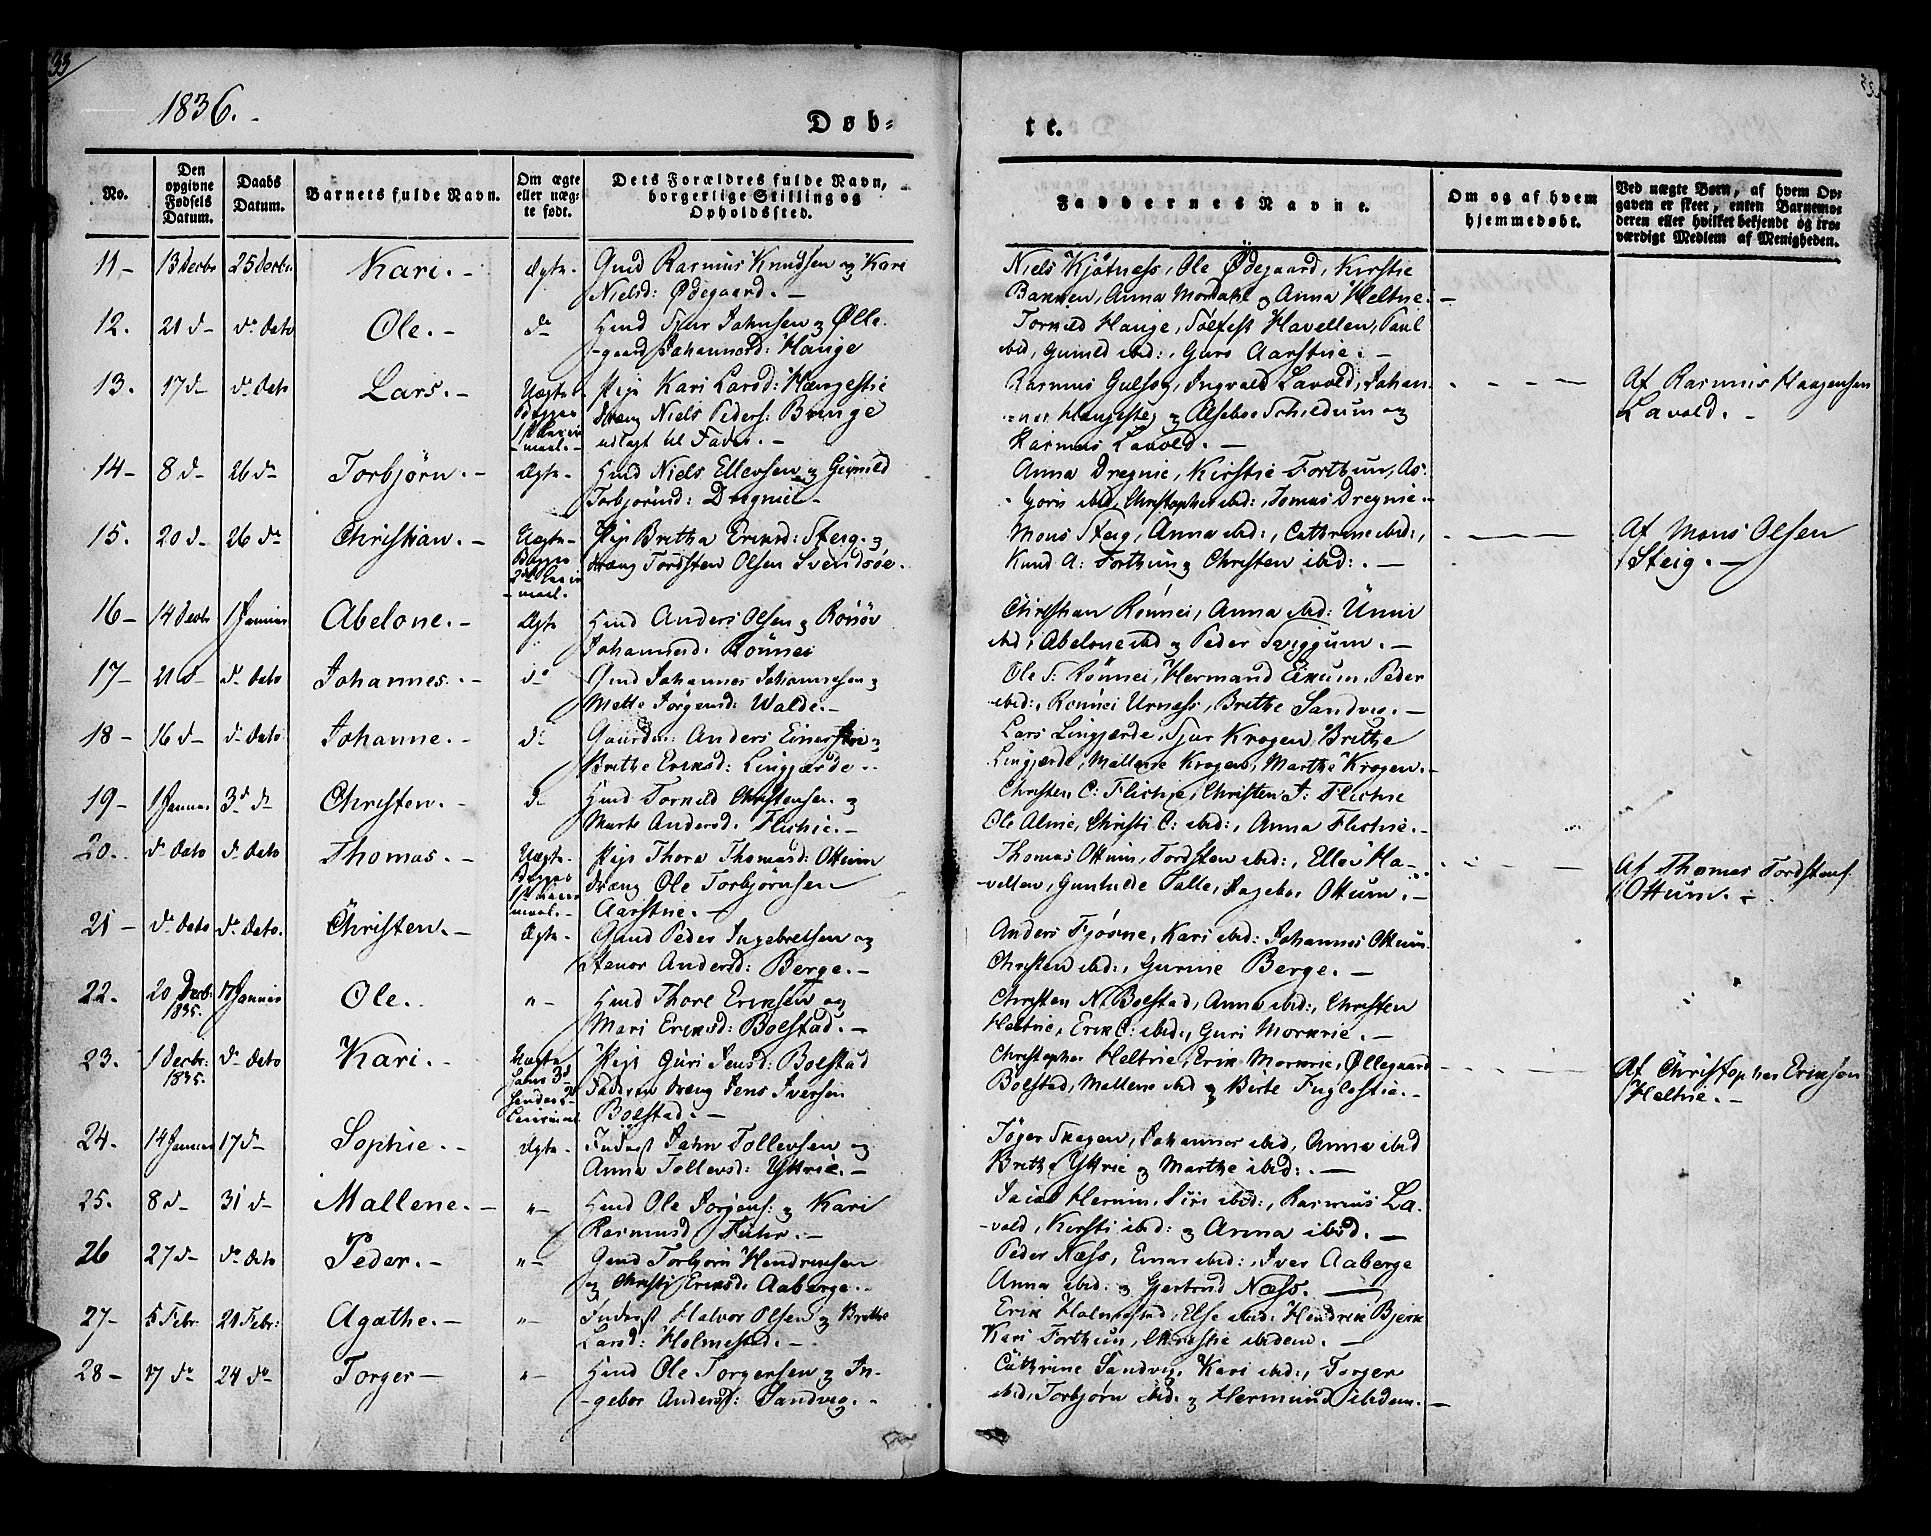 33
1836.-
Døb-
te.
No.
Den opgivne Fødsels Datum.
Daabs Datum.
Barnets fulde Navn.
Om ægte eller uægte født.
Dets Forældres fulde Navn, borgerlige Stilling og Opholdssted.
Faddernes Navne.
Om og af hvem hjemmedøbt.
Ved uægte Børn, af hvem Opgaven er skeet, enten Barnemoderen eller hvilket bekjendt og troværdigt Medlem af Menigheden.
11- 13 Decbr 25 Decbr. Kari.- Ægte- Gmd Rasmus Knudsen og Kari
Nielsd: Ødegaard.-
Niels Kjøtness, Ole Ødegaard, Kirstie
Bakken, Anna Mordahl og Anna Heltne.-
12. 21 d- do dato Ole.- do Hmd Sjur Jahnsen og Ølle-
gaard Johannesd: Hauge
Tornild Hauge, Tolfest Havellen, Paul
ibd, Gunild ibd:, Guro Aarstue.-
13. 17 d- do dato Lars.- Uægte- Pige Kari Larsd: Hængestie
Begges
1st Leier
-maal.-
dræng Niels Peders: Bringe
udlagt til Fader.-
Rasmus Gulsog, Ingvald Lavold, Johan-
nes Hængestie og Alseboe Schildum og
Rasmus Lavold.-
Af Rasmus Haagensen
Lavold.-
14- 8 d- 26 do Torbjørn.- Ægte- Hmd Niels Ellevsen og Gunild
Torbjørnsd: Dregnie-
Anna Dregnie, Kirstie Forthun, As-
-goris ibid, Christopher ibd:, Tomas Dregnie.-
15. 20 d- 26 do Christian.- Uægte- Pige Brithe Eriksd: Steig.- og
Begges
2det Leier
-maal.
dræng Tordsten Olsen Svendsøe.
Mons Steig, Anna ibd:, Cathrine ibd:,
Knud A: Forthun og Christen ibd:.-
Af Mons Olsen
Steig.-
16- 14 Decbr 1 Januar Abelone.- Ægte Hmd Anders Olsen og
Johannesd: Rønnei
Christian Rønnei, Anna ibd: Unni
ibd, Abelone ibd og Peder Sviggum.-
17- 21 d- do dato Johannes.- do Gmd Johannes Johannesen og
Mette Jørgensd: Walde.-
Ole S: Rønnei, Hermand Eikum, Peder
ibid:, Rønnei Urness, Brithe Sandvig.-
18- 16 d- do dato Johanne.- do Anders Einersen og
Brithe Eriksd: Lingjærde.-
Lars Lingjærde, Sjur Krogen, Brithe
Lingjærde, Mallene Krogen, Marthe Krogen.-
19- 1 Januar 3d do Christen.- d- Hmd Tornild Christensen og
Marte Andersd. Flichie.-
Christen C: Flichie, Christen J: Flichie
Ole Alme, Christi C: ibd:, Anna Flichie.-
20. do dato do dato Thomas.- Uægte- Pige Thora Thomasd: Ottum
Begges
1st Leier
maal.-
dræng Ole Torbjørnsen
Aarstue.-
Thomas Ottum, Tordsten ibd:, Ellev Ha-
vellen, Gunhilde Talle, Ingebor Ottum.-
Af Thomas Tordstens:
Ottum.-
21- do dato do dato. Christen.- Ægte- Gmd Peder Ingebretsen og
Stenor Andersd: Berge.-
Anders Fjøsne, Kari ibd: Johannes Ottum
Christen ibd:, Gurine Berge.-
22. 20 Decb: 17 Januar Ole. "- Hmd Thore Eriksen og
1835.
Mari Eriksd: Bolstad.-
Christen N. Bolstad, Anna ibd:, Christen
Heltne, Erik C: ibd:, Guri Morkrie.-
23. 1 Decbr: do dato Kari.- Uægte Pige Guri Jensd: Bolstad
1835.
Faderen dræng Jens Iversen
Bolstad.-
Christopher Heltne, Erik Morkrie, Øllegaard
Bolstad, Mallene ibd og Berte Fuglestie.-
Af Christopher Eriksen
Heltne.-
24. 14 Januar 17 d- Sophie.- Ægte- Inderst Jahn Tollevsen og
Anna Tollevsd: Yttrie.-
Tøger Skagen, Johannes ibid, Anna ibd
Brithe Yttrie og Marthe ibid:.-
25. 8 d- 31 d- Mallene.- "- Hmd Ole Jørgens: og Kari
Rasmusd Fuhr.-
Siri ibd:, Rasmus La-
vold, Kirsti ibd: og Anna ibid.-
26 27 d- do dato Peder.- "- Gmd Torbjørn Hendriksen
og Christi Eriksd: Aaberge.-
Peder Næss, Einar ibd:, Iver Aaberge
Anna ibd: og Gjertrud Næss.-
27- 5 Febr 21 Febr: Agathe.- "- Inderst Halvor Olsen og Brithe
Larsd: Holmestad.-
Erik Holmestad, Else ibd: Hendrik Bjerk
Kari Forthun, Christie ibidem.-
28- 17 do 24 do Torger- "- Hmd Ole Torgersen og In-
-gebor Andersd: Sandvig.-
Cathrine Sandvig, Kari ibd:, Torger
ibd, Torbjørn ibd. og Hermund ibidem.-